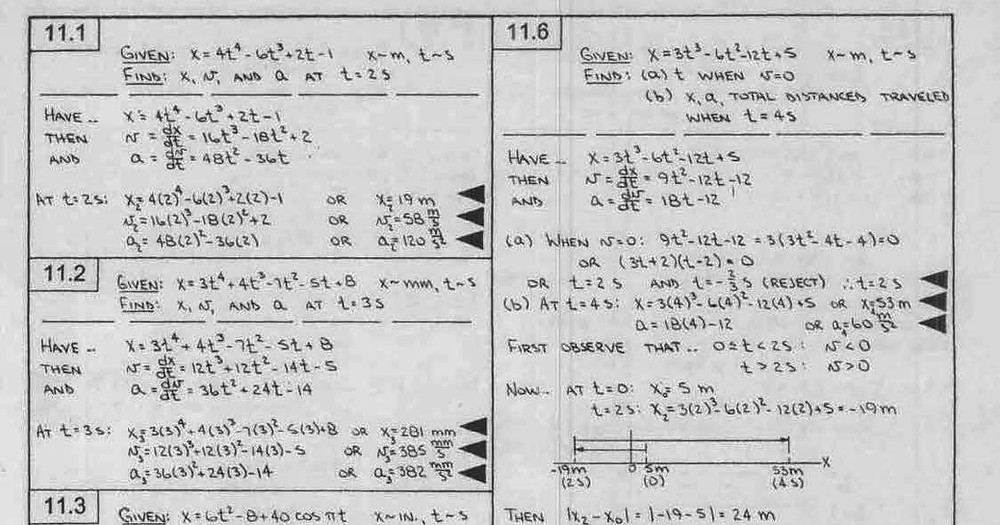 11.1
GIVEN: x = 4t⁴ - 6t³ + 2t - 1 x~m, t~s
FIND: x, v, AND a AT t = 2s
HAVE.. x = 4t⁴ - 6t³ + 2t - 1
THEN v = dx/dt = 16t³ - 18t² + 2
AND a = dv/dt = 48t² - 36t
AT t = 2s: x₂ = 4(2)⁴ - 6(2)³ + 2(2) - 1 OR x₂ = 19 m
v₂ = 16(2)³ - 18(2)² + 2 OR v₂ = 58 m/s
a₂ = 48(2)² - 36(2) OR a₂ = 120 m/s²
11.2
GIVEN: x = 3t⁴ + 4t³ - 7t² - 5t + 8 x~mm, t~s
FIND: x, v, AND a AT t = 3s
HAVE.. x = 3t⁴ + 4t³ - 7t² - 5t + 8
THEN v = dx/dt = 12t³ + 12t² - 14t - 5
AND a = dv/dt = 36t² + 24t - 14
AT t = 3s: x₃ = 3(3)⁴ + 4(3)³ - 7(3)² - 5(3) + 8 OR x₃ = 281 mm
v₃ = 12(3)³ + 12(3)² - 14(3) - 5 OR v₃ = 385 mm/s
a₃ = 36(3)² + 24(3) - 14 OR a₃ = 382 mm/s²
11.3
GIVEN: x = 6t² - 8 + 40 cos πt x~IN., t~s
11.6
GIVEN: x = 3t³ - 6t² - 12t + 5 x~m, t~s
FIND: (a) t WHEN v = 0
(b) x, a, TOTAL DISTANCED TRAVELED
WHEN t = 4s
HAVE.. x = 3t³ - 6t² - 12t + 5
THEN v = dx/dt = 9t² - 12t - 12
AND a = dv/dt = 18t - 12
(a) WHEN v = 0: 9t² - 12t - 12 = 3(3t² - 4t - 4) = 0
OR (3t + 2)(t - 2) = 0
OR t = 2s AND t = -2/3 s (REJECT) ∴ t = 2s
(b) AT t = 4s: x = 3(4)³ - 6(4)² - 12(4) + 5 OR x₄ = 53 m
a = 18(4) - 12 OR a₄ = 60 m/s²
FIRST OBSERVE THAT.. 0 ≤ t < 2s: v < 0
t > 2s: v > 0
NOW.. AT t = 0: x₀ = 5 m
t = 2s: x₂ = 3(2)³ - 6(2)² - 12(2) + 5 = -19 m
-19m 0 5m 53m x
(2s) (0) (4s)
THEN |x₂ - x₀| = |-19 - 5| = 24 m